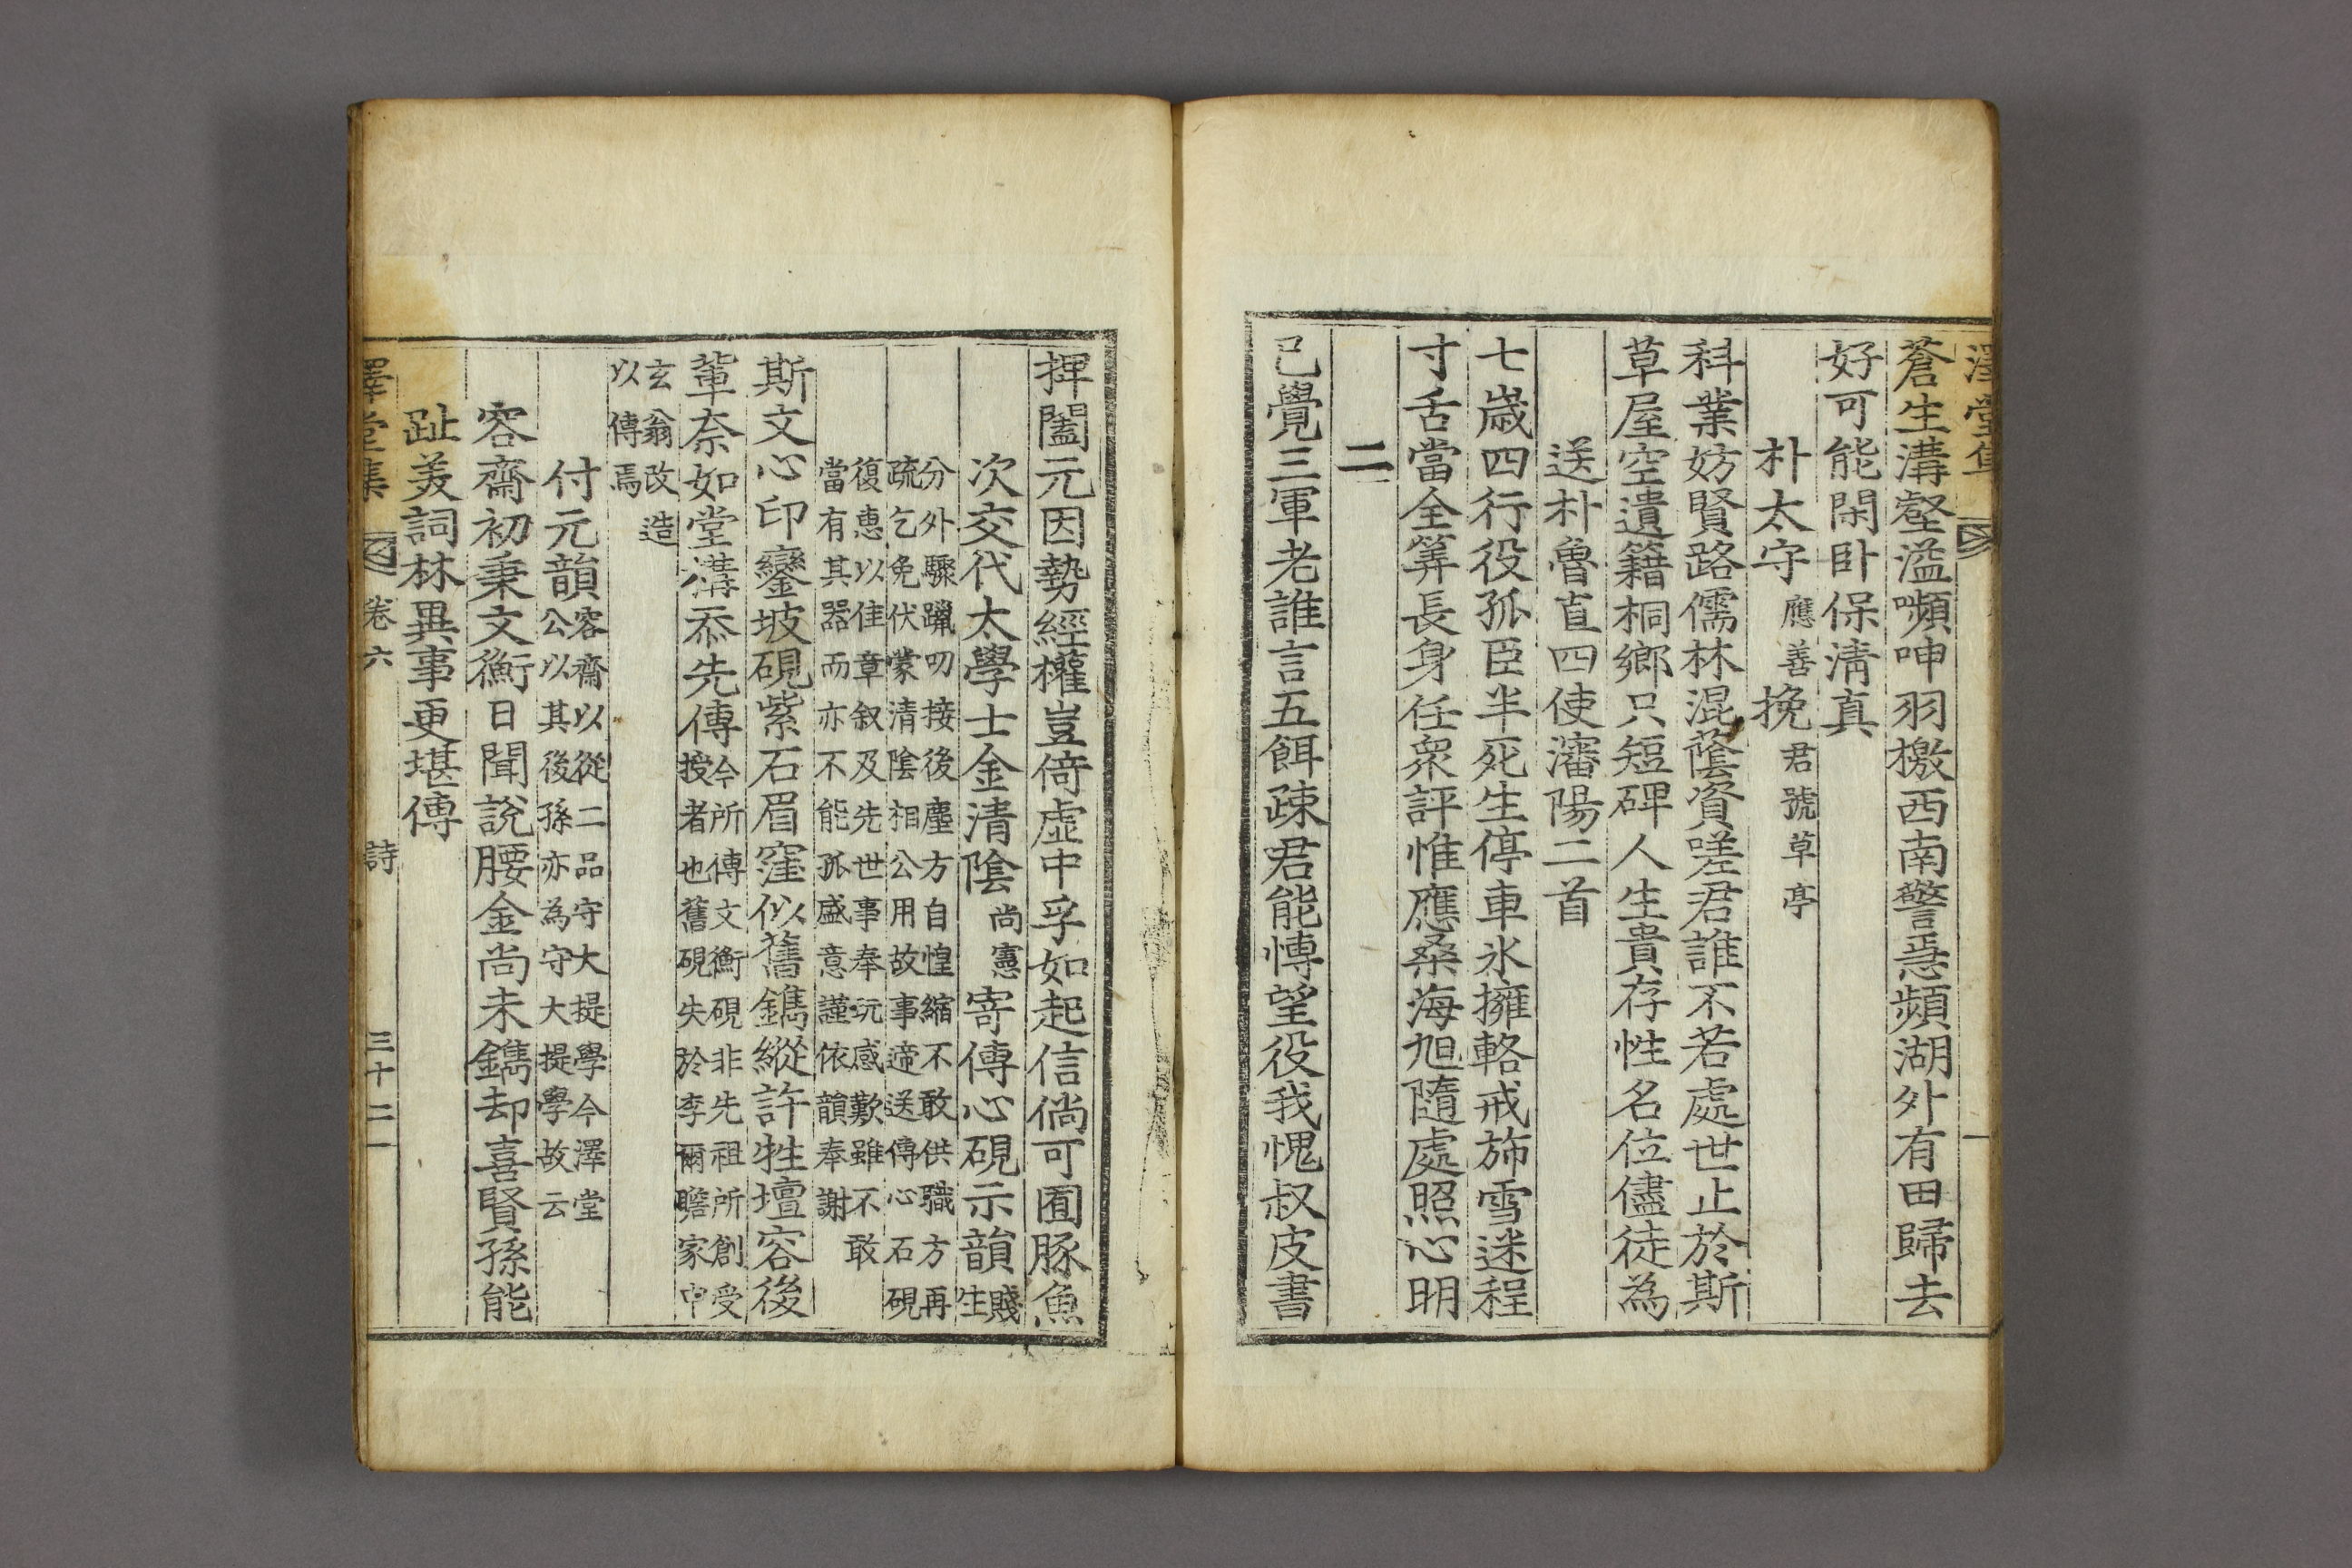 澤堂集
蒼生溝壑溢嚬呻羽檄西南警急頻湖外有田歸去
好可能閑卧保清真
朴太守應善挽君號草亭
科業妨賢路儒林混蔭資嗟君誰不若處世止於斯
草屋空遺籍桐鄉只短碑人生貴存性名位儘徒為
送朴魯直四使瀋陽二首
七歲四行役孤臣半死生停車氷擁輅戒斾雪迷程
寸舌當全筭長身任衆評惟應桑海旭隨處照心明
二
已覺三軍老誰言五餌疎君能愽望役我愧叔皮書
捭闔元因勢經權豈倚虛中孚如起信倘可囿豚魚
次交代太學士金清陰尚憲寄傳心硯示韻賤生
分外驟躐叨接後塵方自惶縮不敢供職方再
疏乞免伏蒙清陰相公用故事遆送傳心石硯
復惠以佳章叙及先世事奉玩感歎雖不敢
當有其器而亦不能孤盛意謹依韻奉謝
斯文心印鑾坡硯紫石眉窪似舊鐫縱許牲壇容後
輩奈如堂溝忝先傳今所傳文衡硯非先祖所創受
授者也舊硯失於李爾瞻家中
玄翁改造
以傳焉
付元韻容齋以從二品守大提學今澤堂
公以其後孫亦為守大提學故云
容齋初秉文衡日聞說腰金尚未鐫却喜賢孫能
趾美詞林異事更堪傳
澤堂集 卷六 詩 三十二